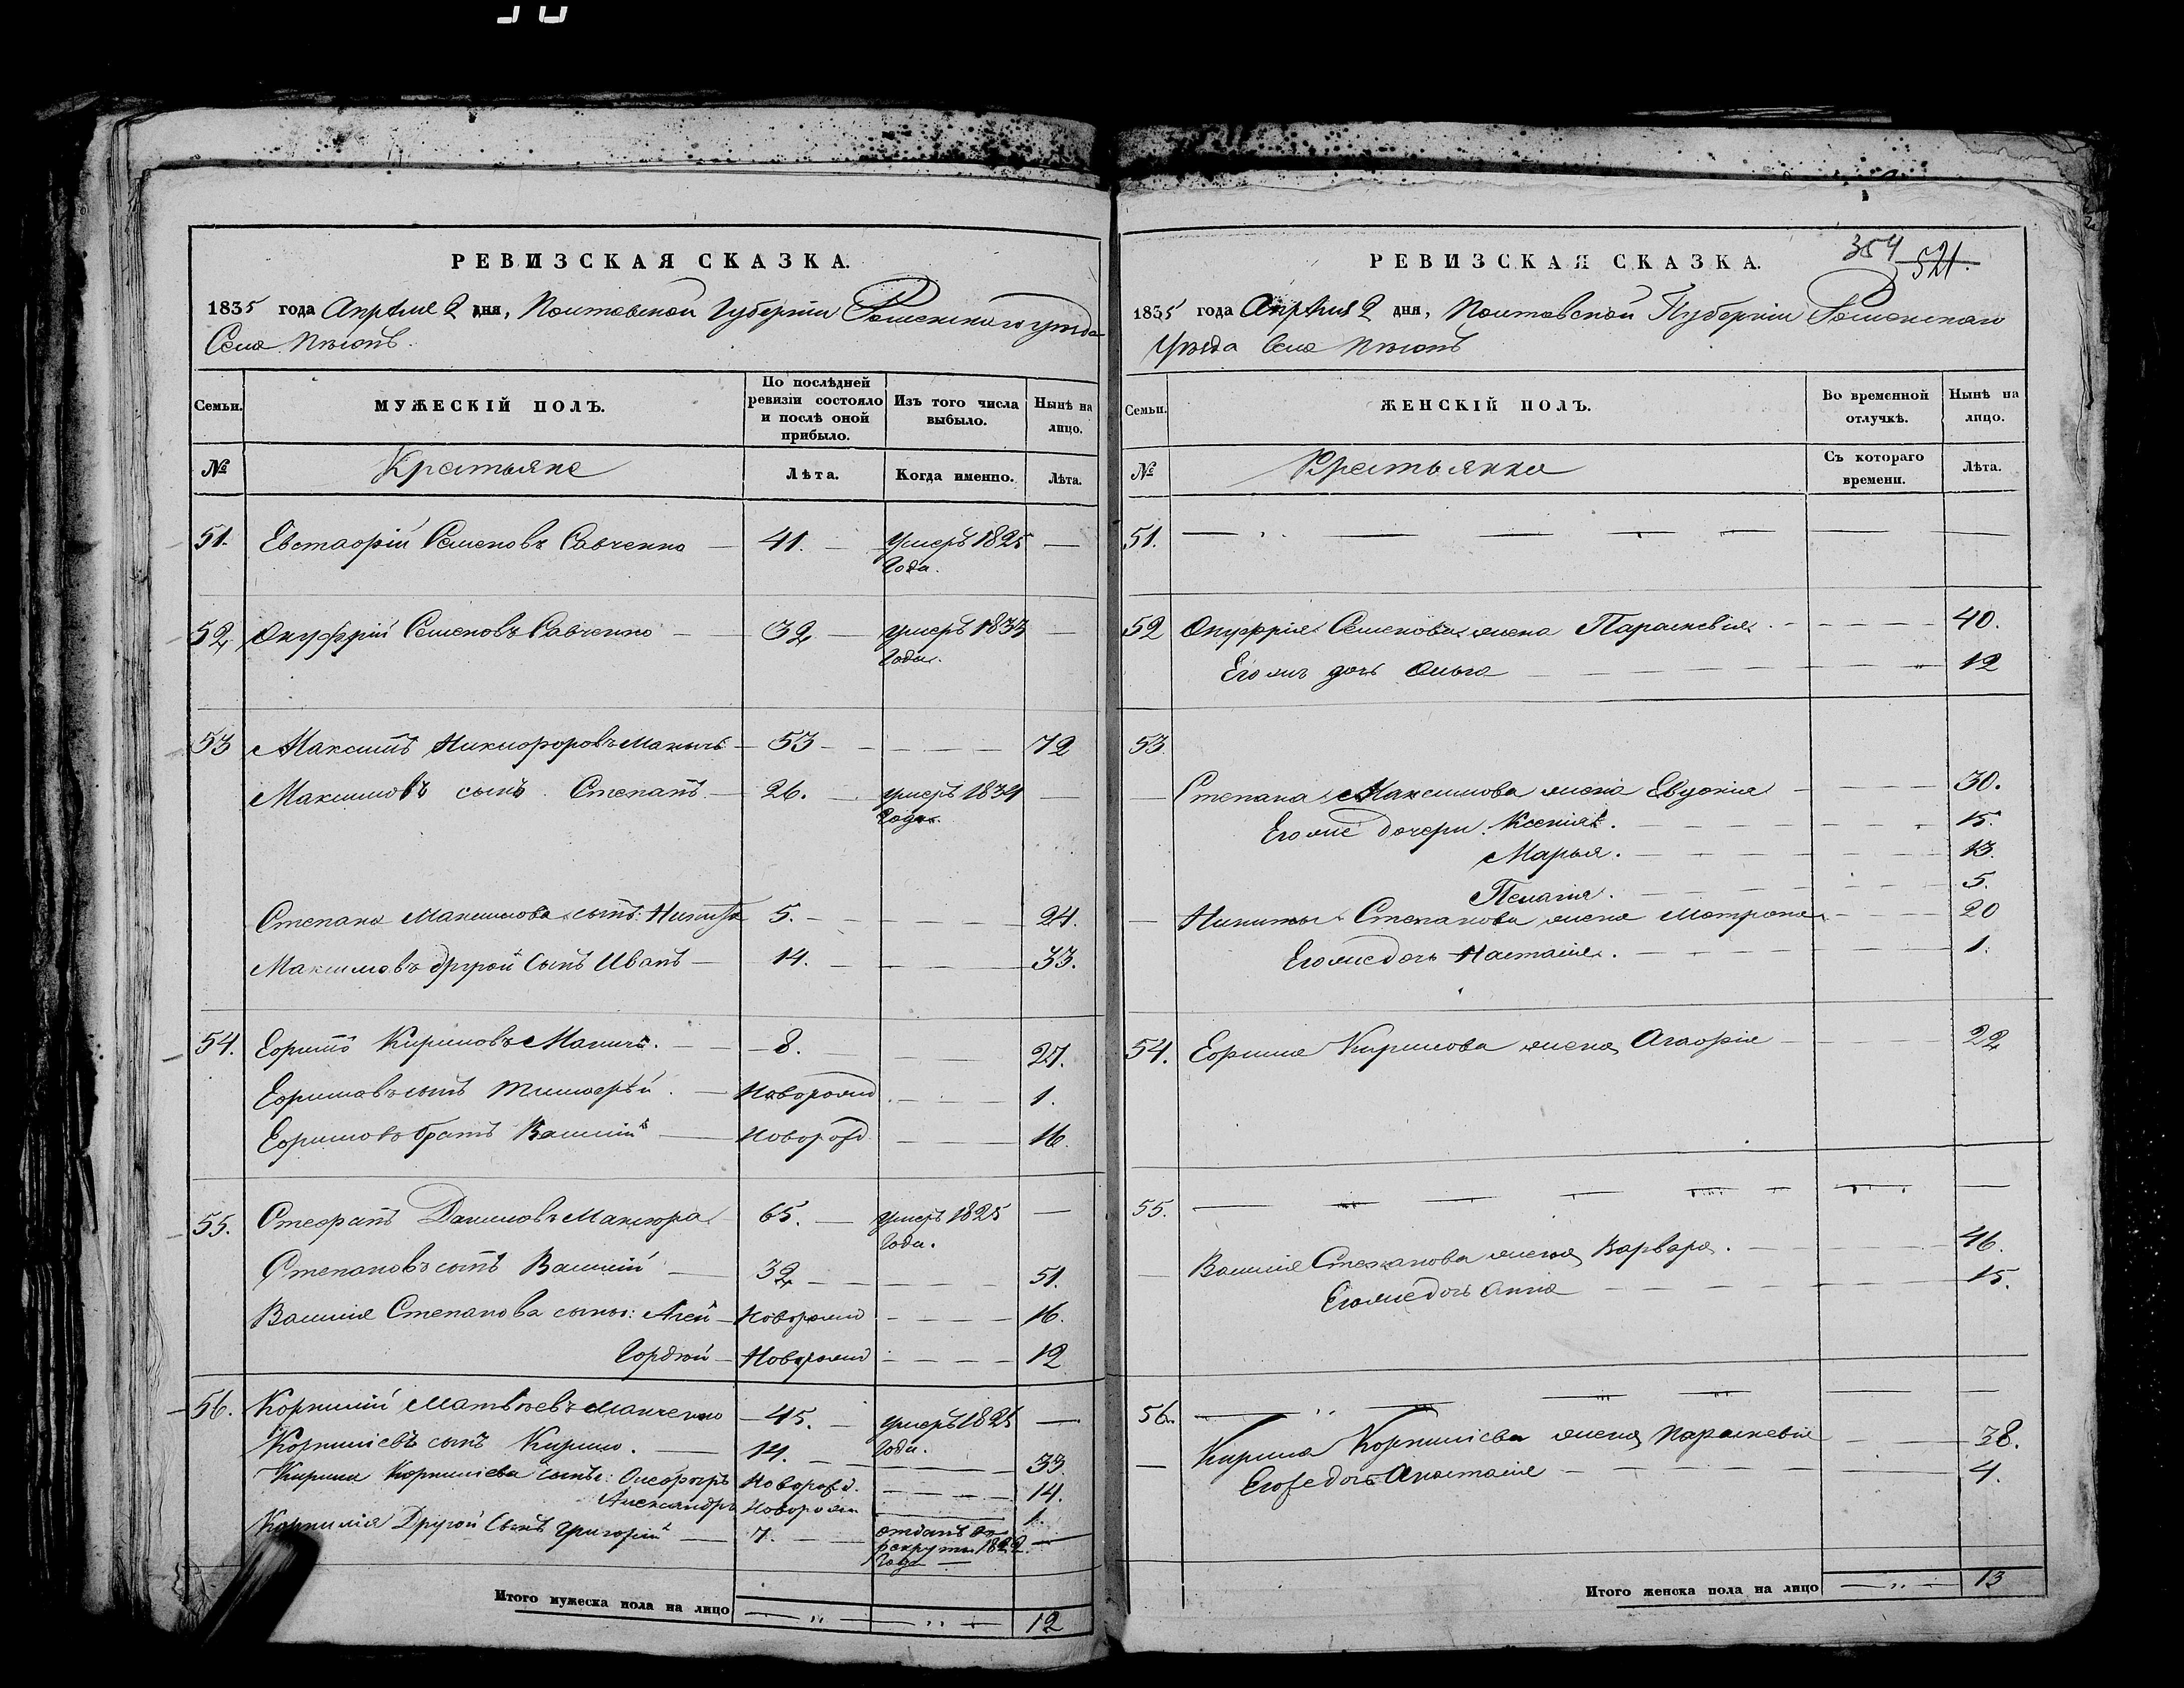 РЕВИЗСКАЯ СКАЗКА.
1835 года Апреля 2 дня, Полтавской Губернии Роменского уезда
Села
Семьи.
МУЖЕСКІЙ ПОЛЪ.
По послѣдней ревизіи состояло и послѣ оной прибыло.
Изъ того числа выбыло.
Нынѣ на лицо.
№
Крестьяне
Лѣта.
Когда именно.
Лѣта.
51. Евстафій Семеновъ Савченко — 41. — умеръ 1825 —
Года.
52. Онуфрій Семеновъ Савченко — 32 — умеръ 1833 —
Года.
53 Максимъ Никифоровъ — 53 — — — — 72
Максимовъ сынъ Степанъ — 26. — умеръ 1834 —
Года.
Степана Максимова сынъ: Никита 5. — — — — 24.
Максимовъ другой сынъ Иванъ — 14. — — — 33.
54. Ефимъ Кириловъ — 8. — — 27.
Ефимовъ сынъ Тимофѣй. — Новорожд. — — — 1.
Ефимовъ братъ Василій — Новорожд. — — 16.
55. Стефанъ Даниловъ 65. — умеръ 1825 —
Года.
Степановъ сынъ Василій — 32 — — — — 51.
Василія Степанова сыны: Новорожд — — — — 16.
Гордѣй — Новорожд — — — — 12
56. Корнилій Матвѣевъ — 45. — умеръ 1825 —
Корниліевъ сынъ Кирило. — 14. — Года. — 33
Кирила Корниліева сыны: Новорожд. — — — — 14.
Александръ Новорожд — 1.
Корнилія Другой Сынъ Григорій — 7. — отданъ въ —
рекруты 1822.
Года —
Итого мужеска пола на лицо — „ — „ — 12
354 521.
РЕВИЗСКАЯ СКАЗКА.
1835 года Апреля 2 дня, Полтавской Губерніи Роменскаго
Уѣзда Села
Семьи.
ЖЕНСКІЙ ПОЛЪ.
Во временной отлучкѣ.
Нынѣ на лицо.
№
Крестьянки
Съ котораго времени.
Лѣта.
51. — — — — —
52 Онуфрія Семенова жена Параскевія. — — — — 40.
Его жъ дочь Ольга — — — — 12
53.
— Степана Максимова жена Евдокія — — — 30.
Его же дочери. Ксенія. — — — 15.
Марья. — — — 13.
Пелагія. — — — 5.
— Никиты Степанова жена Матрона — — — 20
Его же дочь Настасія. — — — 1.
54. Ефима Кирилова жена Агафія — — — 22
55. — — — — —
— Василія Степанова жена Варвара. — — — 46.
Его же дочь Анна — — — 15.
56. — — — — —
— Кирила Корниліева жена Параскевія — — 38.
Его же дочь Анастасія — — — 4.
Итого женска пола на лицо — „ — 13